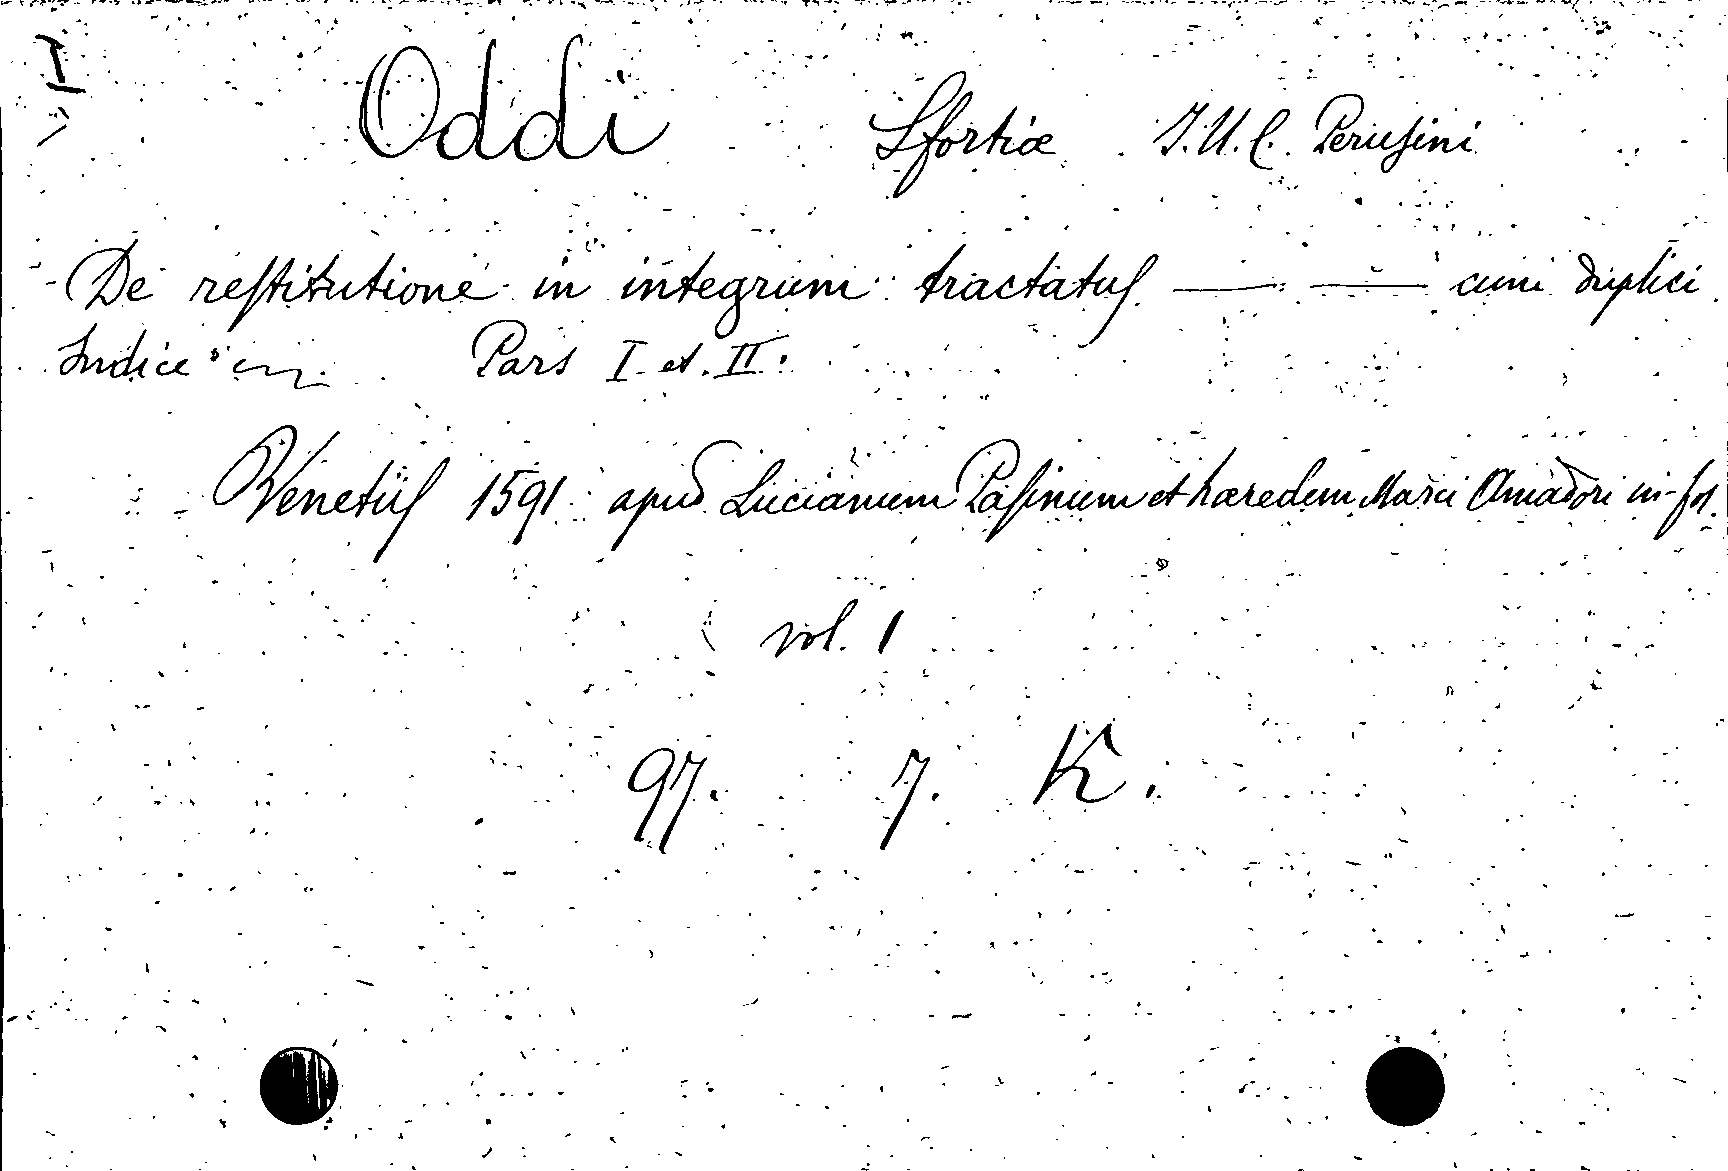 I
Oddi Sfortiæ J.U.C. Perusini
De restitutione in integrum tractatus — — cum duplici
Indice Pars I et II.
Venetiis 1591 apud Lucianum Pasinum et hæredem Marci Amadori in-fol.
vol. 1
97. 7. K.